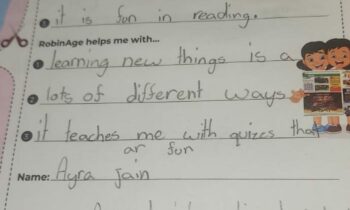 3 it is fun in reading.
RobinAge helps me with...
1 learning new things is a
2 lots of different ways
3 it teaches me with quizes that
ar fun
Name: Ayra Jain